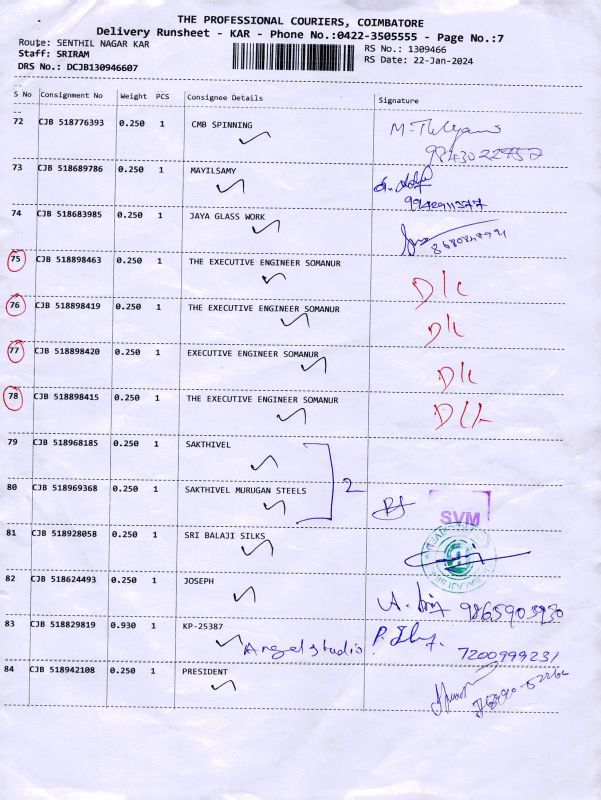 THE PROFESSIONAL COURIERS, COIMBATORE
Delivery Runsheet - KAR - Phone No.:0422-3505555 - Page No.:7
Route: SENTHIL NAGAR KAR
RS No.: 1309466
Staff: SRIRAM
RS Date: 22-Jan-2024
DRS No.: DCJB130946607
S No Consignment No Weight PCS Consignee Details Signature
72 CJB 518776393 0.250 1 CMB SPINNING
9943022452
73 CJB 518689786 0.250 1 MAYILSAMY
74 CJB 518683985 0.250 1 JAYA GLASS WORK
75 CJB 518898463 0.250 1 THE EXECUTIVE ENGINEER SOMANUR D/c
76 CJB 518898419 0.250 1 THE EXECUTIVE ENGINEER SOMANUR D/c
77 CJB 518898420 0.250 1 EXECUTIVE ENGINEER SOMANUR D/c
78 CJB 518898415 0.250 1 THE EXECUTIVE ENGINEER SOMANUR D/c
79 CJB 518968185 0.250 1 SAKTHIVEL
2
80 CJB 518969368 0.250 1 SAKTHIVEL MURUGAN STEELS
SVM
81 CJB 518928058 0.250 1 SRI BALAJI SILKS
82 CJB 518624493 0.250 1 JOSEPH
9865903930
83 CJB 518829819 0.930 1 KP-25387
Angel studio
7200999231
84 CJB 518942108 0.250 1 PRESIDENT